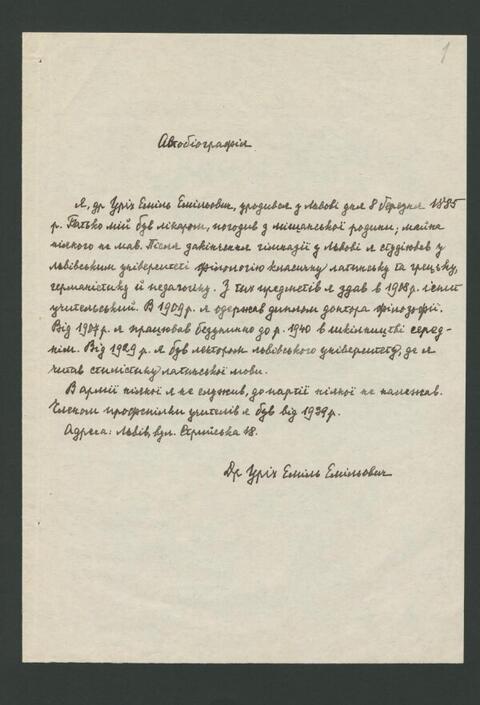 1
Автобіографія
Я, др Уріх Еміль Емільович, уродився у Львові дня 8 березня 1885
р. Батько мій був лікарем, походив з міщанської родини; майна
ніякого не мав. Після закінчення гімназії у Львові я студіював у
львівським університеті філологію клясичну латинську та грецьку,
германістику й педагогіку. З тих предметів я здав в 1908 р. іспит
учительський. В 1909 р. я одержав диплом доктора філозофії.
Від 1907 р. я працював бездушно до р. 1940 в шкільництві серед-
нім. Від 1929 р. я був лєктором львівського університету, де я
читав стилістику латинської мови.
В армії ніякої я не служив, до партії ніякої не належав.
Членом профспілки учителів я був від 1939 р.
Адреса: Львів, вул. Стрийська 18.
Др Уріх Еміль Емільович